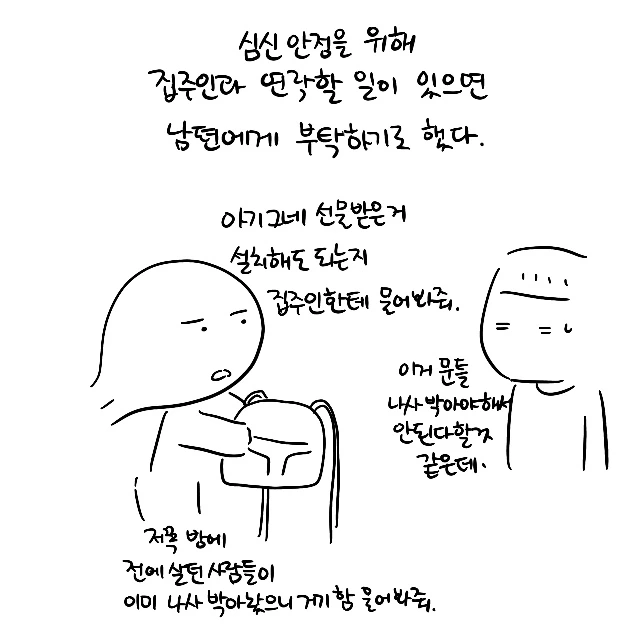 심신 안정을 위해
집주인과 연락할 일이 있으면
남편에게 부탁하기로 했다.
아기그네 선물받은거
설치해도 되는지
집주인한테 물어봐줘.
이거 문틀
나사 박아야해서
안된다할것
같은데.
저쪽 방에
전에 살던 사람들이
이미 나사 박아놨으니 거기함 물어봐줘.